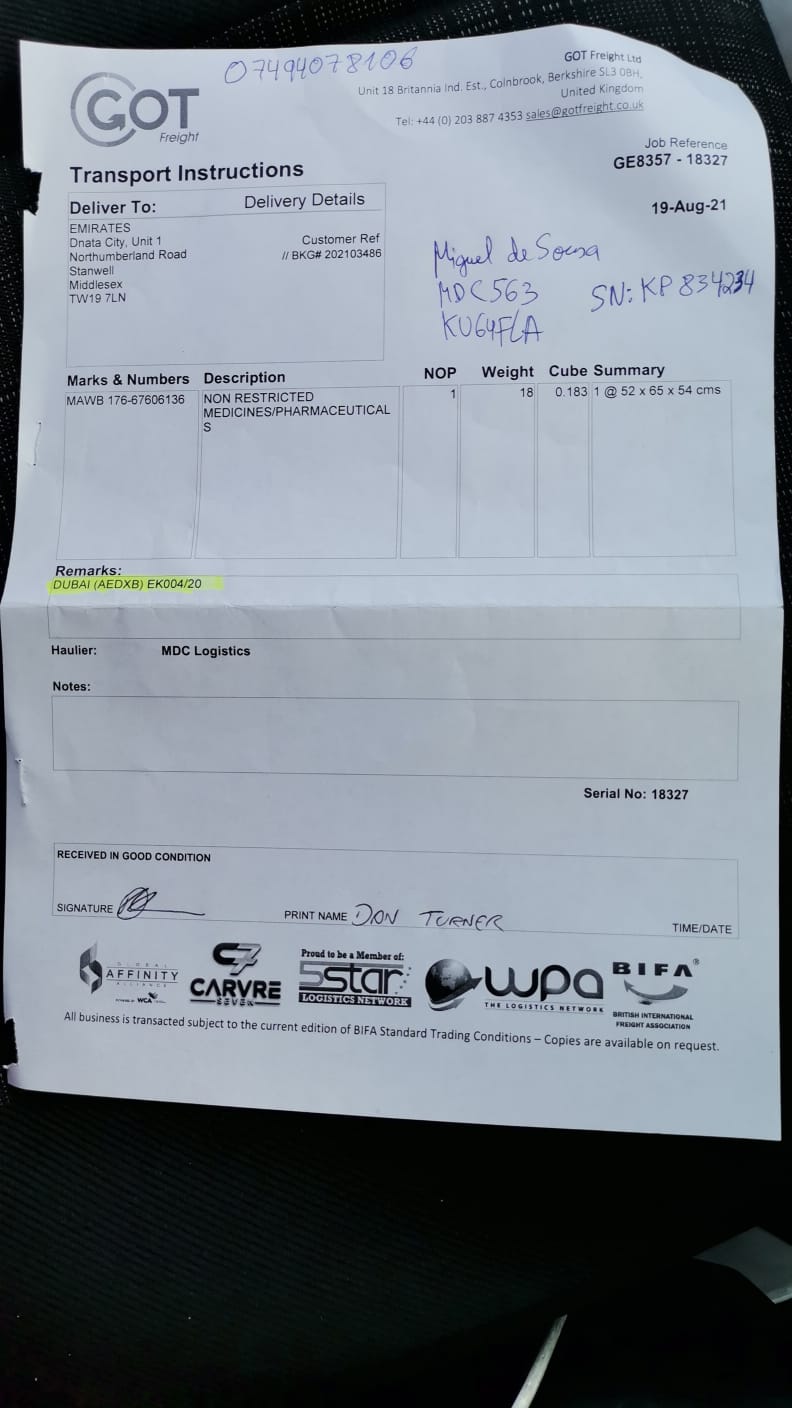 07494078106
GOT
Freight
GOT Freight Ltd
Unit 18 Britannia Ind. Est., Colnbrook, Berkshire SL3 0BH,
United Kingdom
Tel: +44 (0) 203 887 4353 sales@gotfreight.co.uk
Job Reference
GE8357 - 18327
19-Aug-21
Transport Instructions
Deliver To:
Delivery Details
EMIRATES
Dnata City, Unit 1
Northumberland Road
Stanwell
Middlesex
TW19 7LN
Customer Ref
// BKG# 202103486
Miguel de Sousa
MDC563
KU64FLA
SN: KP834234
Marks & Numbers Description NOP Weight Cube Summary
MAWB 176-67606136 NON RESTRICTED 1 18 0.183 1 @ 52 x 65 x 54 cms
MEDICINES/PHARMACEUTICAL
S
Remarks:
DUBAI (AEDXB) EK004/20
Haulier: MDC Logistics
Notes:
Serial No: 18327
RECEIVED IN GOOD CONDITION
SIGNATURE
PRINT NAME DON TURNER
TIME/DATE
GLOBAL
AFFINITY
ALLIANCE
POWERED BY WCA
C7
CARVRE
SEVEN
Proud to be a Member of:
5star
LOGISTICS NETWORK
wpa
THE LOGISTICS NETWORK
BIFA®
BRITISH INTERNATIONAL
FREIGHT ASSOCIATION
All business is transacted subject to the current edition of BIFA Standard Trading Conditions – Copies are available on request.